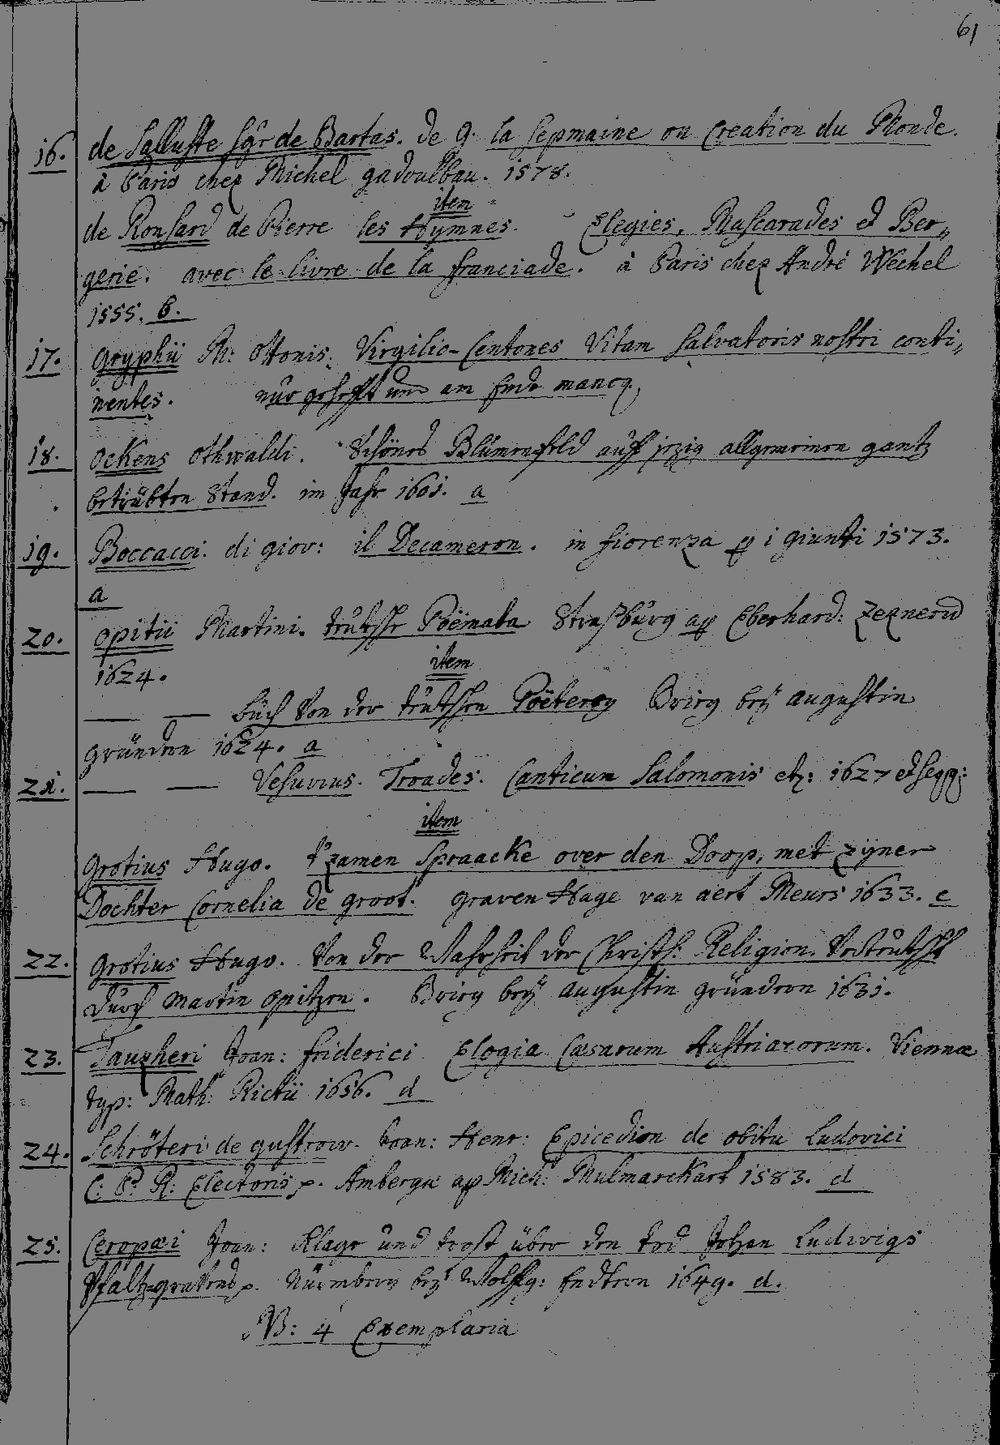 61
16. de Salluste Sgr de Bartas. de G. la Sepmaine ou Creation du Monde.
à Paris chez Michel gadoulbau. 1578.
item
de Ronsard de Pierre les Hymnes. Elegies, Mascarades et Ber„
gerie. avec le livre de la franciade. à Paris chez André Wechel
1555. b.
17. Gryphii M: Ottonis. Virgilio-Centones Vitam Salvatoris nostri conti„
nentes. nur gehefft und am Ende mancq.
18. Ockens Othwaldi. Schönes Blumenfeld auff jezig allgemeinen gantz
betrübten Stand. im Jahr 1601. a
19. Boccacci. di giov: il Decameron. in fiorenza p i giunti 1573.
a
20. Opitii Martini. teütsche Poëmata Straßburg ap Eberhard: Zeznerid
1624.
item
— — buch Von der teütschen Poëterey Brieg beÿ augustin
gründern 1624. a
21. — — Vesuvius. Troades. Canticum Salomonis etz: 1627 et seqq:
item
Grotius Hugo. t'zamen Spraacke over den Doop, met zijner
Dochter Cornelia de groot. graven Hage van aert Meurs 1633. c
22. Grotius Hugo. Von der Wahrheit der Christl: Religion. Verteütscht
durch Martin Opitzen. Brieg beÿ augustin gründern 1631.
23. Tauzheri Joan: friderici Elogia Caesarum Austriacorum. Viennae
typ: Math: Rictii 1656. d
24. Schröteri de gustrow. Joan: Henr: Epicedion de obitu Ludovici
C. P. R: Electoris p. Ambergae ap Mich: Mulmarckart 1583. d
25. Ceropaei Joan: Klage und trost über den tod Johan Ludwigs
Pfaltzgravens p. Nürmberg beÿ Wolffg: Endtern 1649. d.
NB: 4 Exemplaria